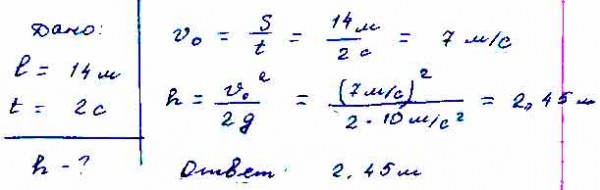 Дано:
l = 14 м
t = 2 с
h - ?
v₀ = S/t = 14 м/2 с = 7 м/с
h = v₀²/2g = (7 м/с)²/2·10 м/с² = 2,45 м
Ответ: 2,45 м